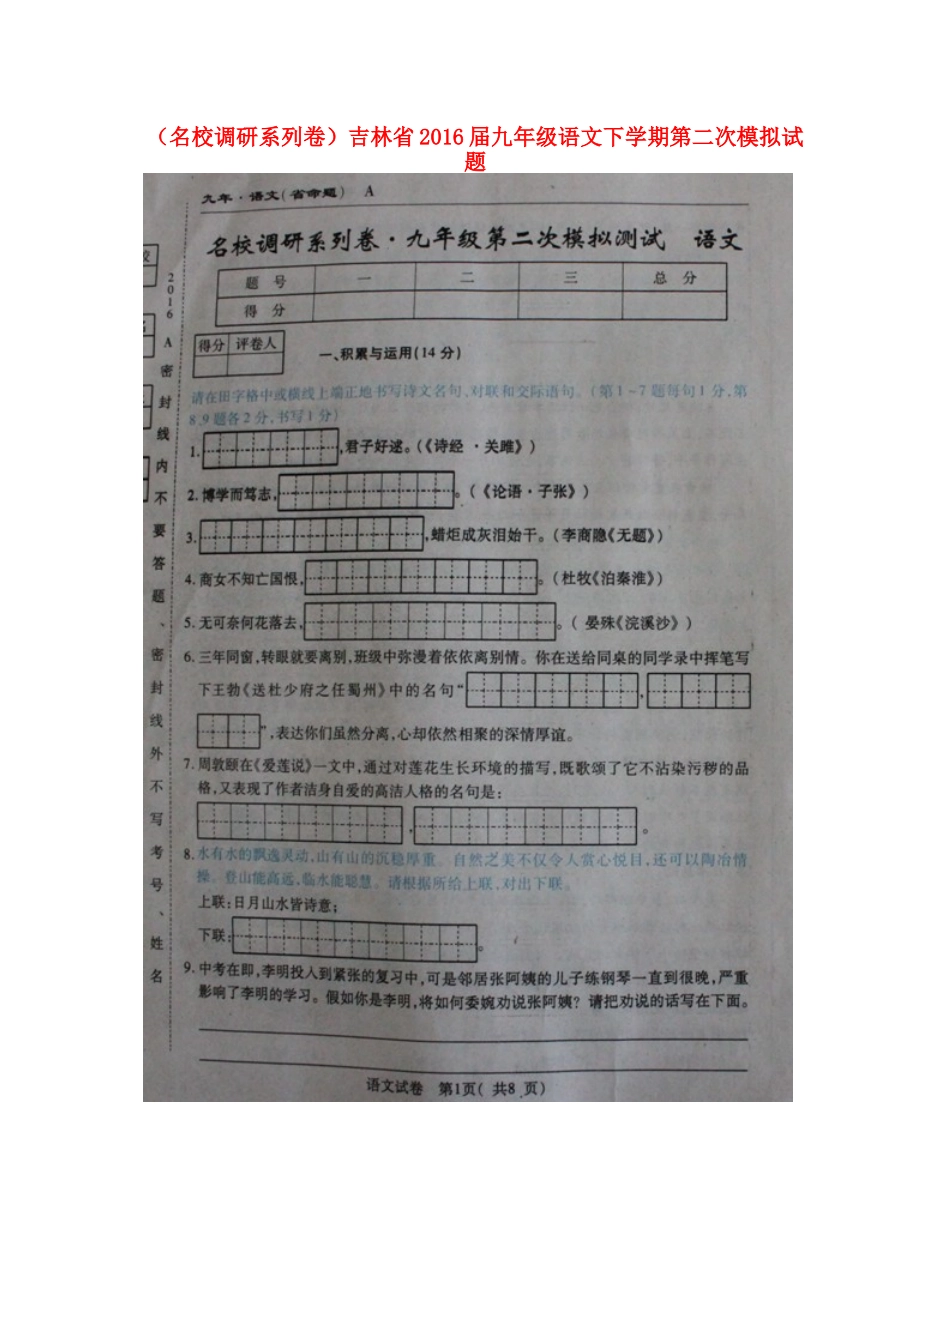 （名校调研系列卷）吉林省 2016 届九年级语文下学期第二次模拟试
题
九年·语文(省命题) A
名校调研系列卷·九年级第二次模拟测试 语文
题 号 一 二 三 总 分
得 分
得分 评卷人
一、积累与运用(14分)
请在田字格中或横线上端正地书写诗文名句、对联和交际语句。(第1~7题每句1分,第
8、9题各2分,书写1分)
1. ,君子好逑。(《诗经·关雎》)
2.博学而笃志, 。(《论语·子张》)
3. ,蜡炬成灰泪始干。(李商隐《无题》)
4.商女不知亡国恨, 。(杜牧《泊秦淮》)
5.无可奈何花落去, 。( 晏殊《浣溪沙》)
6.三年同窗,转眼就要离别,班级中弥漫着依依离别情。你在送给同桌的同学录中挥笔写
下王勃《送杜少府之任蜀州》中的名句“ ,
”,表达你们虽然分离,心却依然相聚的深情厚谊。
7.周敦颐在《爱莲说》一文中,通过对莲花生长环境的描写,既歌颂了它不沾染污秽的品
格,又表现了作者洁身自爱的高洁人格的名句是:
, 。
8.水有水的飘逸灵动,山有山的沉稳厚重。自然之美不仅令人赏心悦目,还可以陶冶情
操。登山能高远,临水能聪慧。请根据所给上联,对出下联。
上联:日月山水皆诗意;
下联: 。
9.中考在即,李明投入到紧张的复习中,可是邻居张阿姨的儿子练钢琴一直到很晚,严重
影响了李明的学习。假如你是李明,将如何委婉劝说张阿姨?请把劝说的话写在下面。
语文试卷 第1页( 共8 页)
2016 A 密封线内不要答题、密封线外不写考号、姓名